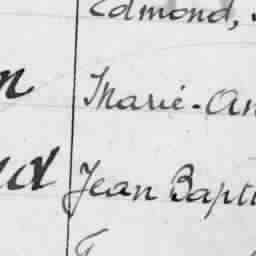 Edmond,
Marie-An
Jean Bapti